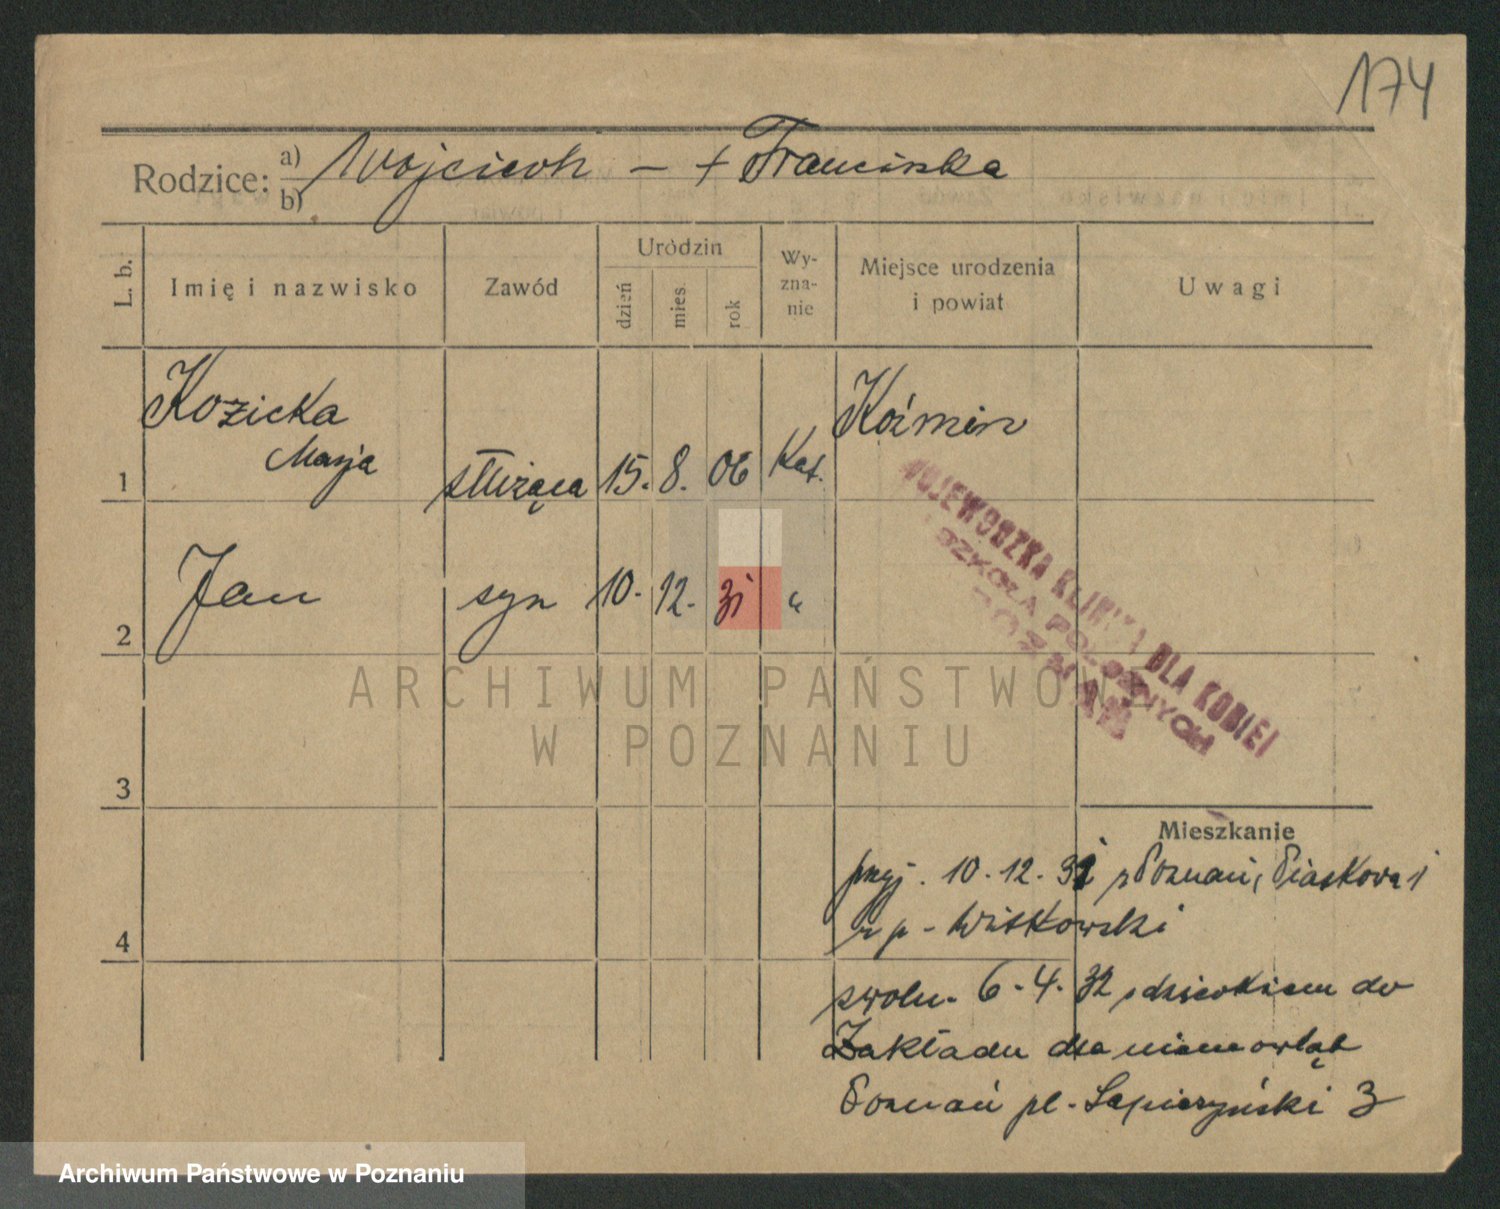 174
Rodzice: a) Wojciech – + Franciszka
b)
L. b.
Imię i nazwisko
Zawód
Urodzin
dzień
mies.
rok
Wy-
zna-
nie
Miejsce urodzenia
i powiat
Uwagi
Kozicka
Marja
1
służąca 15. 8. 06 Kat.
Koźmin
2
Jan syn 10. 12. 31 "
WOJEWODZKA KLINIKA DLA KOBIET
SZKOŁA POŁOŻNYCH
POZNAŃ
ARCHIWUM PAŃSTWOWE
W POZNANIU
3
Mieszkanie
przyj. 10. 12. 31 z Poznań, Piaskowa 1
4
z p. Witkowski
zwoln. 6. 4. 32 z dzieckiem do
Zakładu dla niemowląt
Poznań pl. Sapieżyński 3
Archiwum Państwowe w Poznaniu